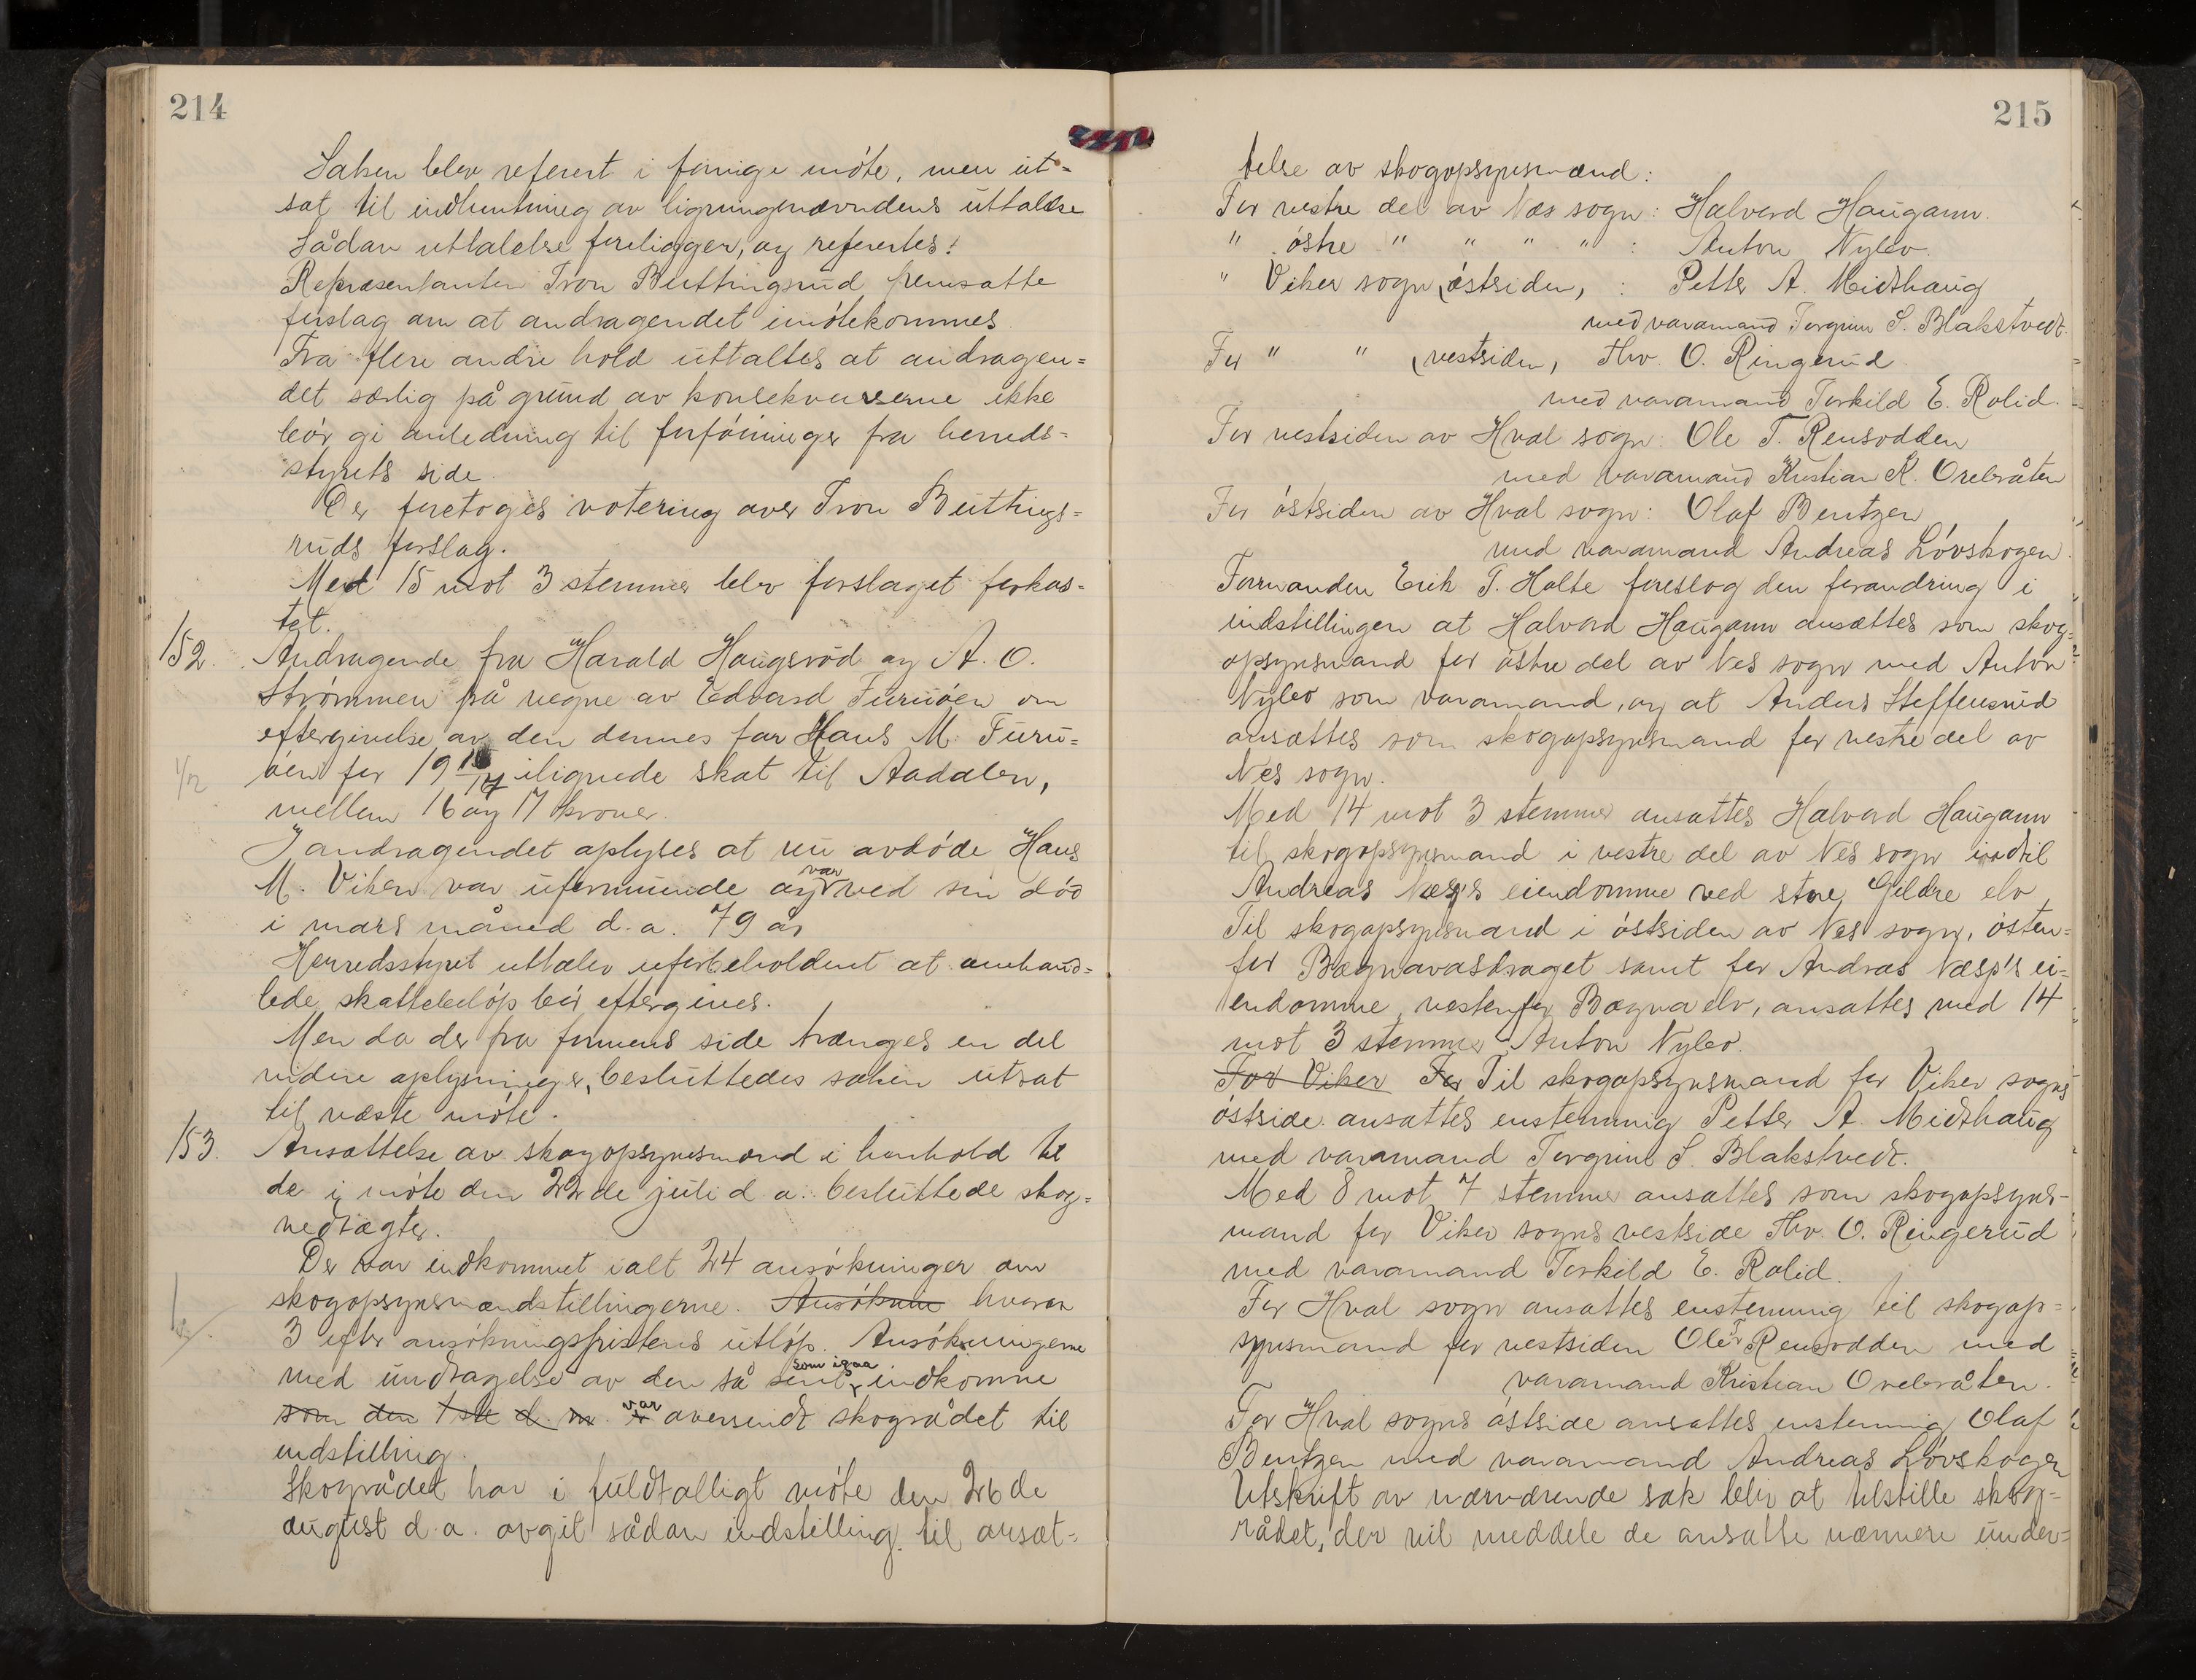 214
Saken blev referert i forrige møte, men ut-
sat til indhentning av ligningsnævndens uttalelse
Sådan uttalelse foreligger, og refertes!
Repræsentanten Tron Buttingsrud fremsatte
forslag om at andragendet imøtekommes.
Fra flere andre hold uttaltes at andragen-
det særlig på grund av konsekvenserne ikke
bør gi anledning til forføininger fra herreds-
styrets side.
Der foretoges votering over Tron Buttings-
ruds forslag.
Med 15 mot 3 stemmer blev forslaget forkas-
tet.
152. Andragende fra Harald Haugsrød og A. O.
Strømmen på vegne av Edvard Furuøen om
eftergivelse av den dennes far Hans M. Furu-
øen for 19 /17 ilignede skat til Aadalen,
mellem 16 og 17 kroner.
I andragendet oplyses at nu avdøde Hans
M. Viken var uformuende og var ved sin død
i mars måned d. a. 79 år
Herredsstyret uttaler uforbeholdent at omhand-
lede skattebeløp bør eftergives.
Men da der fra formens side trænges en del
videre oplysninger, besluttedes saken utsat
til næste møte.
153. Ansættelse av skogopsynsmænd i henhold til
de i møte den 22de juli d. a. besluttede skog-
vedtægter.
Der var indkommet ialt 24 ansøkninger om
skogopsynsmandstillingerne. Ansøkn hvorav
3 efter ansøkningsfristens utløp. Ansøkningerne
med undtagelse av den så sent som igaa indkomne
som den 1ste d. m. var oversendt skogrådet til
indstilling.
Skogrådet har i fuldtalligt møte den 26de
august d. a. avgit sådan indstilling til ansæt-
215
telse av skogopsynsmænd:
For vestre del av Næs sogn: Halvord Haugann.
" østre " " " " : Anton Nyløv.
" Viker sogn (østsiden) : Petter A. Midthaug
med varamand Torgrim S. Blakstvedt.
For " " (vestsiden) Thv. O. Ringerud
med varamand Torkild E. Rolid.
For vestsiden av Hval sogn: Ole T. Rensodden
med varamand Kristian K. Orebråten
For østsiden av Hval sogn: Olaf Bentzen
med varamand Andreas Løvskogen.
Formanden Erik T. Holte foreslog den forandring i
indstillingen at Halvord Haugann ansættes som skog-
opsynsmand for østre del av Nes sogn med Anton
Nyløv som varamand, og at Anders Steffensrud
ansættes som skogopsynsmand for vestre del av
Nes sogn.
Med 14 mot 3 stemmer ansattes Halvord Haugann
til skogopsynsmand i vestre del av Nes sogn indtil
Andreas Næsp's eiendomme ved store Gildre elv
Til skogopsynsmand i østsiden av Nes sogn, østen-
for Bægnavasdraget samt for Andras Næsp's ei-
endomme vestenfor Bægna elv, ansattes med 14
mot 3 stemmer Anton Nyløv.
For Viker For Til skogopsynsmand for Viker sogns
østside ansattes enstemmig Petter A. Midthaug
med varamand Torgrim S. Blakstvedt.
Med 8 mot 7 stemmer ansattes som skogopsyns-
mand for Viker sogns vestside Thv. O. Ringerud
med varamand Torkild E. Rolid.
For Hval sogn ansattes enstemmig til skogop-
synsmand for vestsiden Ole T Rensodden med
varamand Kristian Orebråten.
For Hval sogns østside ansattes enstemmig Olaf
Bentzen med varamand Andreas Løvskogen
Utskrift av nærværende sak blir at tilstille skog-
rådet, der vil meddele de ansatte nærmere under-